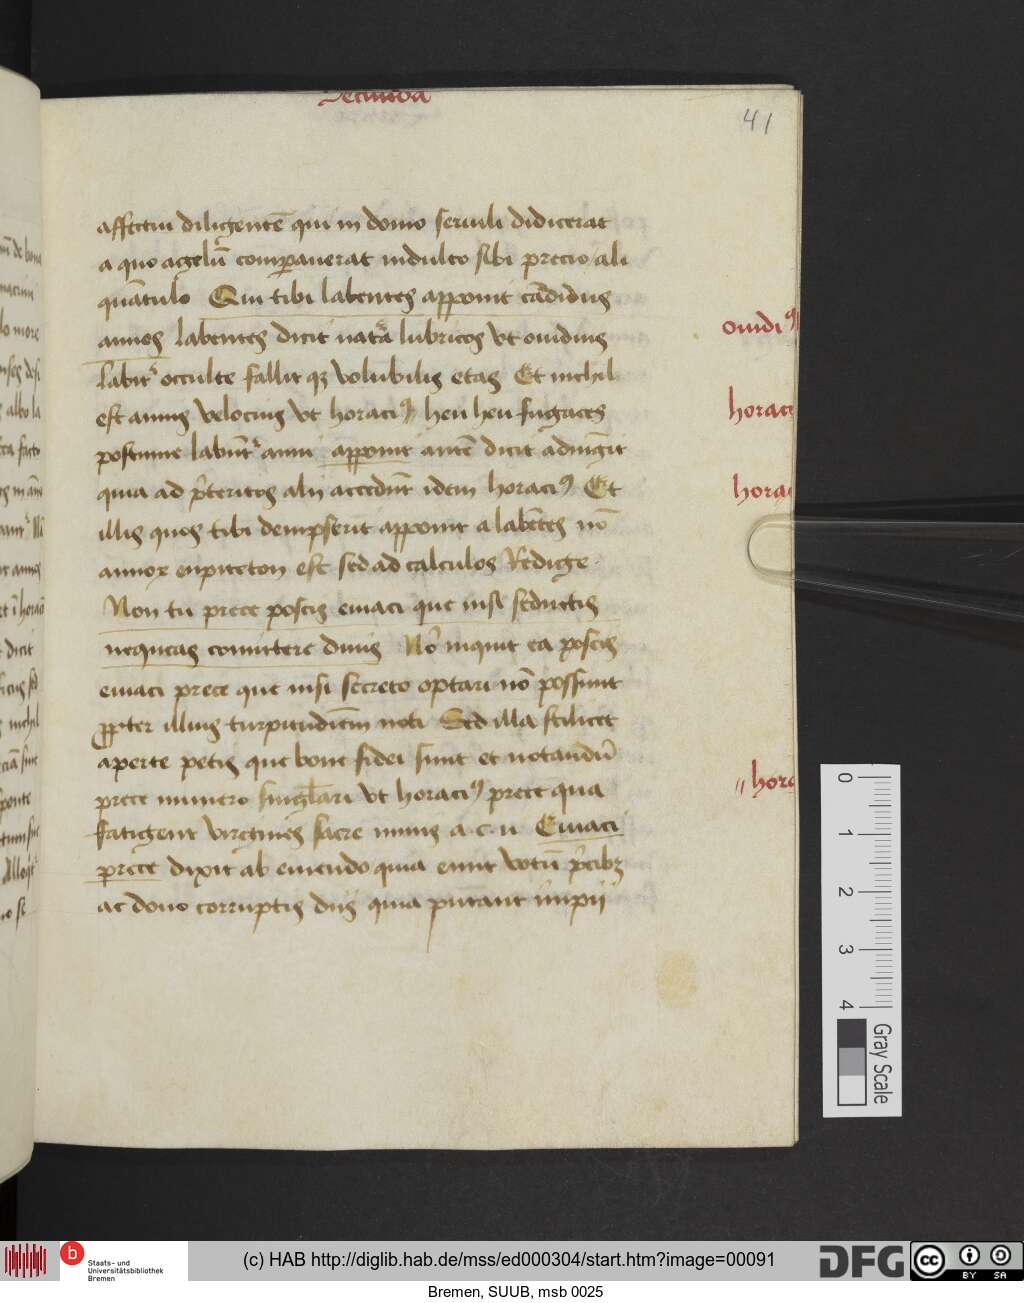 Secunda
41
affectui diligentē qui in domo seruili didicerat
a quo agelū comparauerat indulto sibi precio ali
quātulo Qui tibi labentes apponit cādidus
annos labentes dicit natā lubricos vt ouidius
ouidiꝰ
labitᷣ occulte fallit qꝫ volubilis etas Et nichil
est annis velocius vt horaciꝰ heu heu fugaces
horac
postume labūtᷣ anni apponit autē dicit adiūgit
quia ad p̄teritos alii accedūt idem horaciꝰ Et
horac
illis quos tibi dempserit apponit a labētes nō
sed ad calculos Redige
Non tu prece poscis emaci que nisi seductis
nequeas comittere diuis Nō inquit ea poscis
emaci prece que nisi secreto optari nō possunt
ꝓpter illius turpitudinē uoti Sed illa scilicet
aperte petis que bone fidei sunt et notandū
prece numero singlari vt horaciꝰ prece qua
hora
fatigent virgines sacre minus a. c. u Emaci
prece dixit ab emendo quia emit votū p̄cibꝫ
ac dono corruptis diis quia putant impii
0
1
2
3
4
Gray Scale
b
Staats- und
Universitätsbibliothek
Bremen
(c) HAB http://diglib.hab.de/mss/ed000304/start.htm?image=00091
DFG
cc
BY SA
Bremen, SUUB, msb 0025